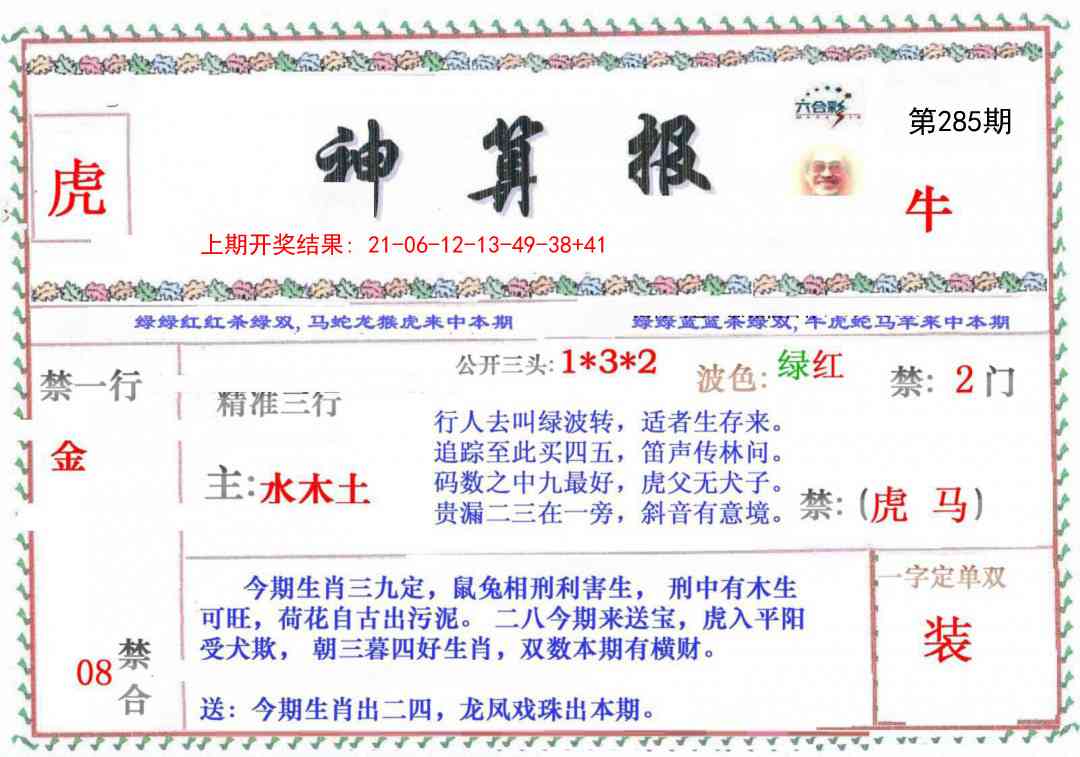 六合彩
第285期
虎
神算报
牛
上期开奖结果：21-06-12-13-49-38+41
绿绿红红杀绿双,马蛇龙猴虎来中本期
绿绿蓝蓝杀绿双,牛虎蛇马羊来中本期
公开三头:1*3*2
波色:绿红
禁：2门
禁一行
金
精准三行
主:水木土
行人去叫绿波转，适者生存来。
追踪至此买四五，笛声传林问。
码数之中九最好，虎父无犬子。
贵漏二三在一旁，斜音有意境。
禁:(虎 马)
今期生肖三九定，鼠兔相刑利害生， 刑中有木生
可旺，荷花自古出污泥。 二八今期来送宝，虎入平阳
受犬欺， 朝三暮四好生肖，双数本期有横财。
送：今期生肖出二四，龙凤戏珠出本期。
08
禁合
一字定单双
装